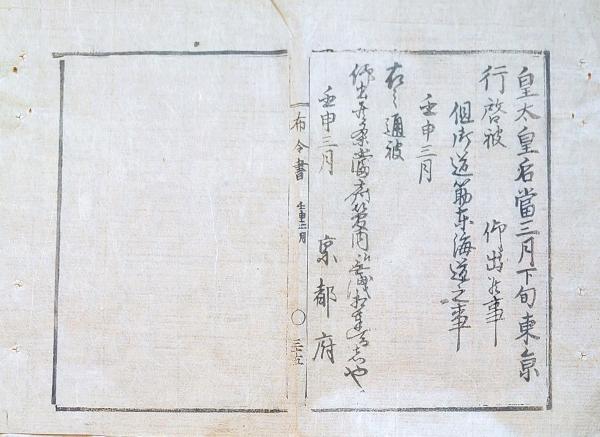 皇太皇后當三月下旬東京
行啓被 仰出候事
但御道筋東海道之事
壬申三月
右之通被
仰出候条當府管内無洩相達るもの也
壬申三月 京都府
布令書 壬申三月 〇 三十五